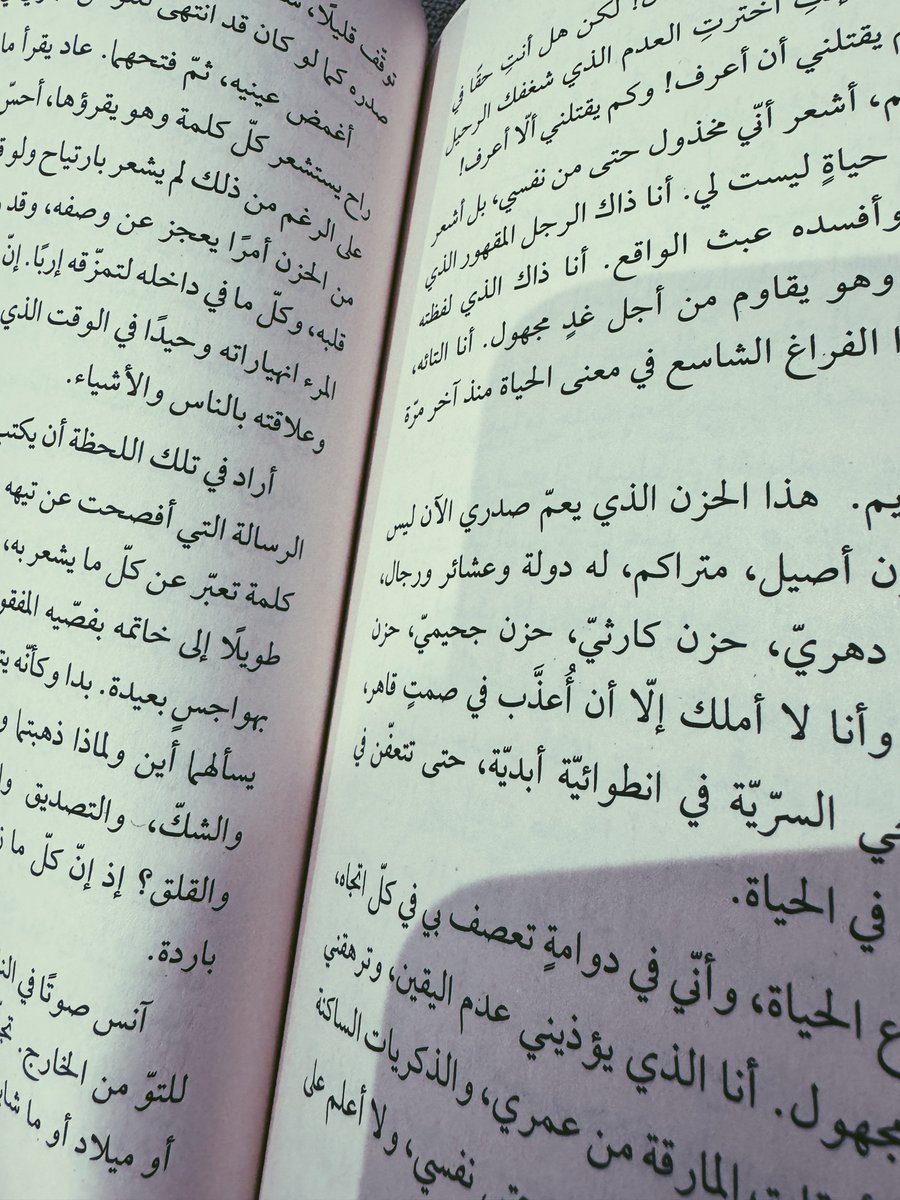 اخترتِ العدم الذي شغفك الرحيل
يقتلني أن أعرف! وكم يقتلني ألّا أعرف!
أشعر أنّي مخذول حتى من نفسي، بل أشعر
حياةٍ ليست لي. أنا ذاك الرجل المقهور الذي
وأفسده عبث الواقع. أنا ذاك الذي لفظته
وهو يقاوم من أجل غدٍ مجهول. أنا التائه،
الفراغ الشاسع في معنى الحياة منذ آخر مرّة
هذا الحزن الذي يعمّ صدري الآن ليس
أصيل، متراكم، له دولة وعشائر ورجال،
دهريّ، حزن كارثيّ، حزن جحيميّ، حزن
وأنا لا أملك إلّا أن أُعذَّب في صمتٍ قاهر،
السرّيّة في انطوائيّة أبديّة، حتى تتعفّن في
في الحياة.
الحياة، وأنّي في دوامةٍ تعصف بي في كلّ اتجاه،
أنا الذي يؤذيني عدم اليقين، وترهقني
المارقة من عمري، والذكريات الساكنة
نفسي، ولا أعلم على
توقّف قليلًا،
صدره كما لو كان قد انتهى
أغمض عينيه، ثمّ فتحهما. عاد يقرأ ما
راح يستشعر كلّ كلمة وهو يقرؤها، أحسّ
على الرغم من ذلك لم يشعر بارتياح ولو
من الحزن أمرًا يعجز عن وصفه، وقد
قلبه، وكلّ ما في داخله لتمزّقه إربًا. إنّ
المرء انهياراته وحيدًا في الوقت الذي
وعلاقته بالناس والأشياء.
أراد في تلك اللحظة أن يكتب
الرسالة التي أفصحت عن تيهه
كلمة تعبّر عن كلّ ما يشعر به،
طويلًا إلى خاتمه بفصّيه
بهواجسٍ بعيدة. بدا وكأنّه
يسألهما أين ولماذا ذهبتما
والشكّ، والتصديق
والقلق؟ إذ إنّ كلّ ما
باردة.
آنس صوتًا في
للتوّ من الخارج.
أو ميلاد أو ما